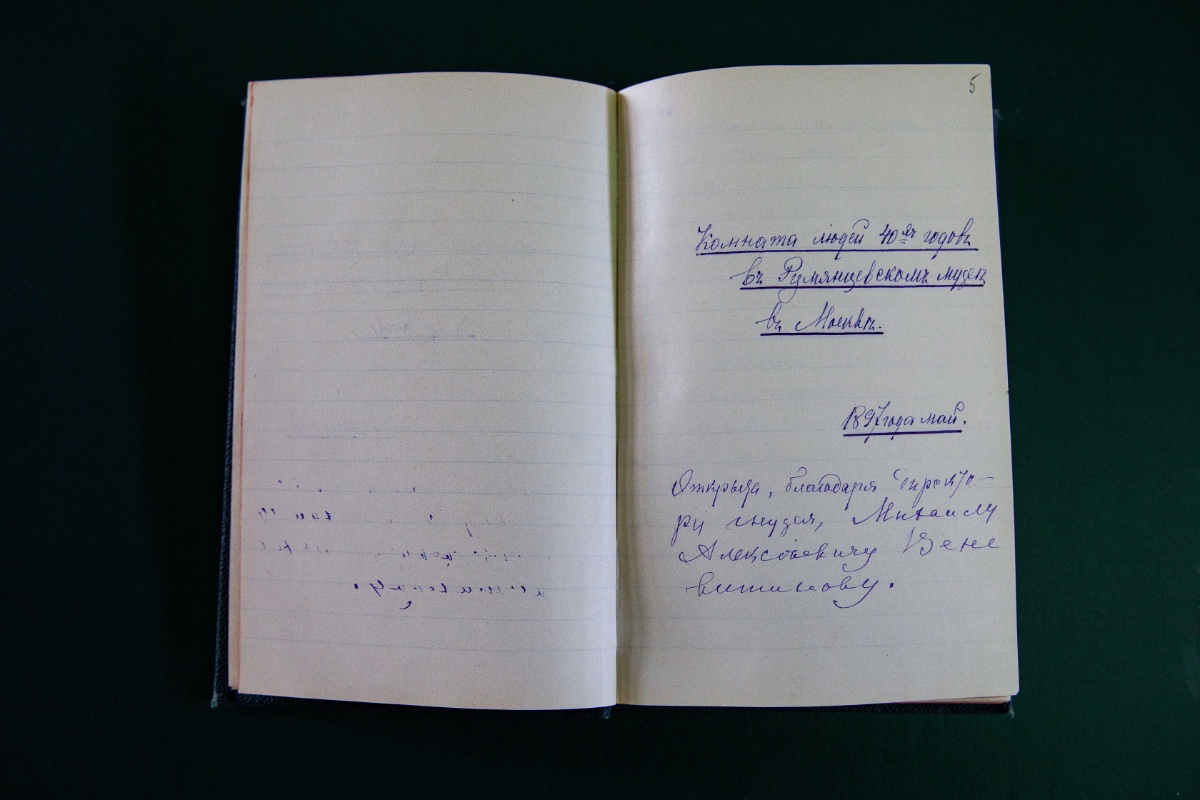 5
Комната людей 40ыхъ годовъ
въ Румянцевскомъ музеѣ
въ Москвѣ.
1897 года май.
Открыта, благодаря Директо-
ру музея, Михаилу
Алексѣевичу Вене
витинову.